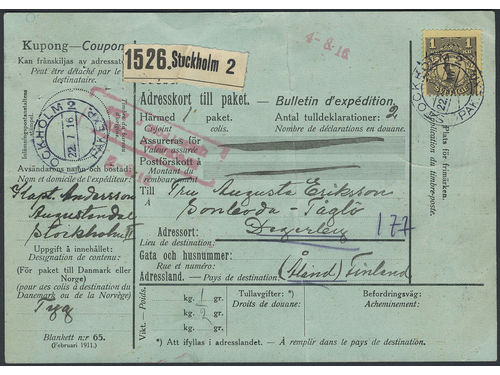 Kupong—Coupon
Kan frånskiljas av adressaten
Peut être détaché par le
destinataire.
1526. Stockholm 2
4-8-16
1
KR
STOCKHOLM 2
22.7.16
PAK. AFD.
Adresskort till paket. — Bulletin d'expédition.
Härmed 1 paket.
Ci-joint colis.
Antal tulldeklarationer: 2
Nombre de déclarations en douane.
Assureras för
Valeur assurée
Postförskott å
Montant du
remboursement
Plats för frimärken.
Application du timbre-poste.
Avsändarens namn och bostad:
Nom et domicile de l'expéditeur:
Kapt. Andersson
Augustendal
Stockholm
Till
À
Fru Augusta Eriksson
Adressort:
Lieu de destination:
177
Gata och husnummer:
Rue et numéro:
Adressland. — Pays de destination:
(Åland) Finland
Uppgift å innehållet:
Désignation de contenu:
(För paket till Danmark eller
Norge)
(pour des colis à destination du
Danemark ou de la Norvège)
Tyg
Blankett n:r 65.
(Februari 1911.)
Vikt. — Poids.
kg. 1 gr.
kg. 2 gr.
kg. gr.
Tullavgifter: *)
Droits de douane:
Befordringsväg:
Acheminement:
*) Att ifyllas i adresslandet. — À remplir dans le pays de destination.